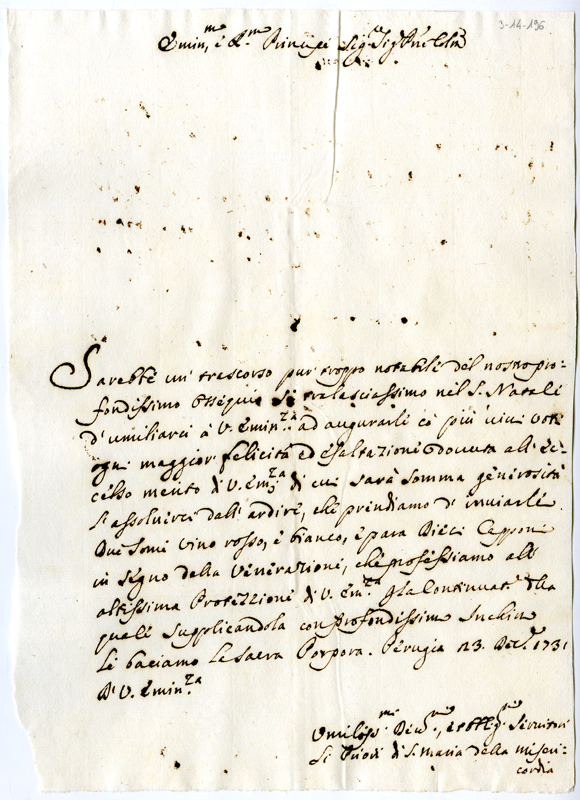 3-14-196
Emin.mo e R.mo Principe Sig.r Sig.r P.ne Col.mo
Sarebbe un' trascorso pur troppo notabile del nostro pro-
fondissimo Ossequio se tralasciassimo nel S. Natale
d'umiliarci à V. Emin.za ad augurarle co più vivi voti
ogni maggior felicità ed esaltazione dovuta all' Ec-
celso merito di V. Em.za di cui sarà somma generosità
l'assolverci dall' ardire, che prendiamo d' inviarle
Due some vino rosso, e bianco, e para Dieci Capponi
in segno della Venerazione, che professiamo alla
altissima Protezzione di V. Em.za p la Continuat.e della
quale supplicandola con profondissimo Inchino
Le baciamo la Sacra Porpora. Perugia 23. Dec.re 1731
D' V. Emin.za
Umiliss.mi Dev.mi, e Obblig.mi Servitori
Li Priori di S. Maria della miseri-
cordia